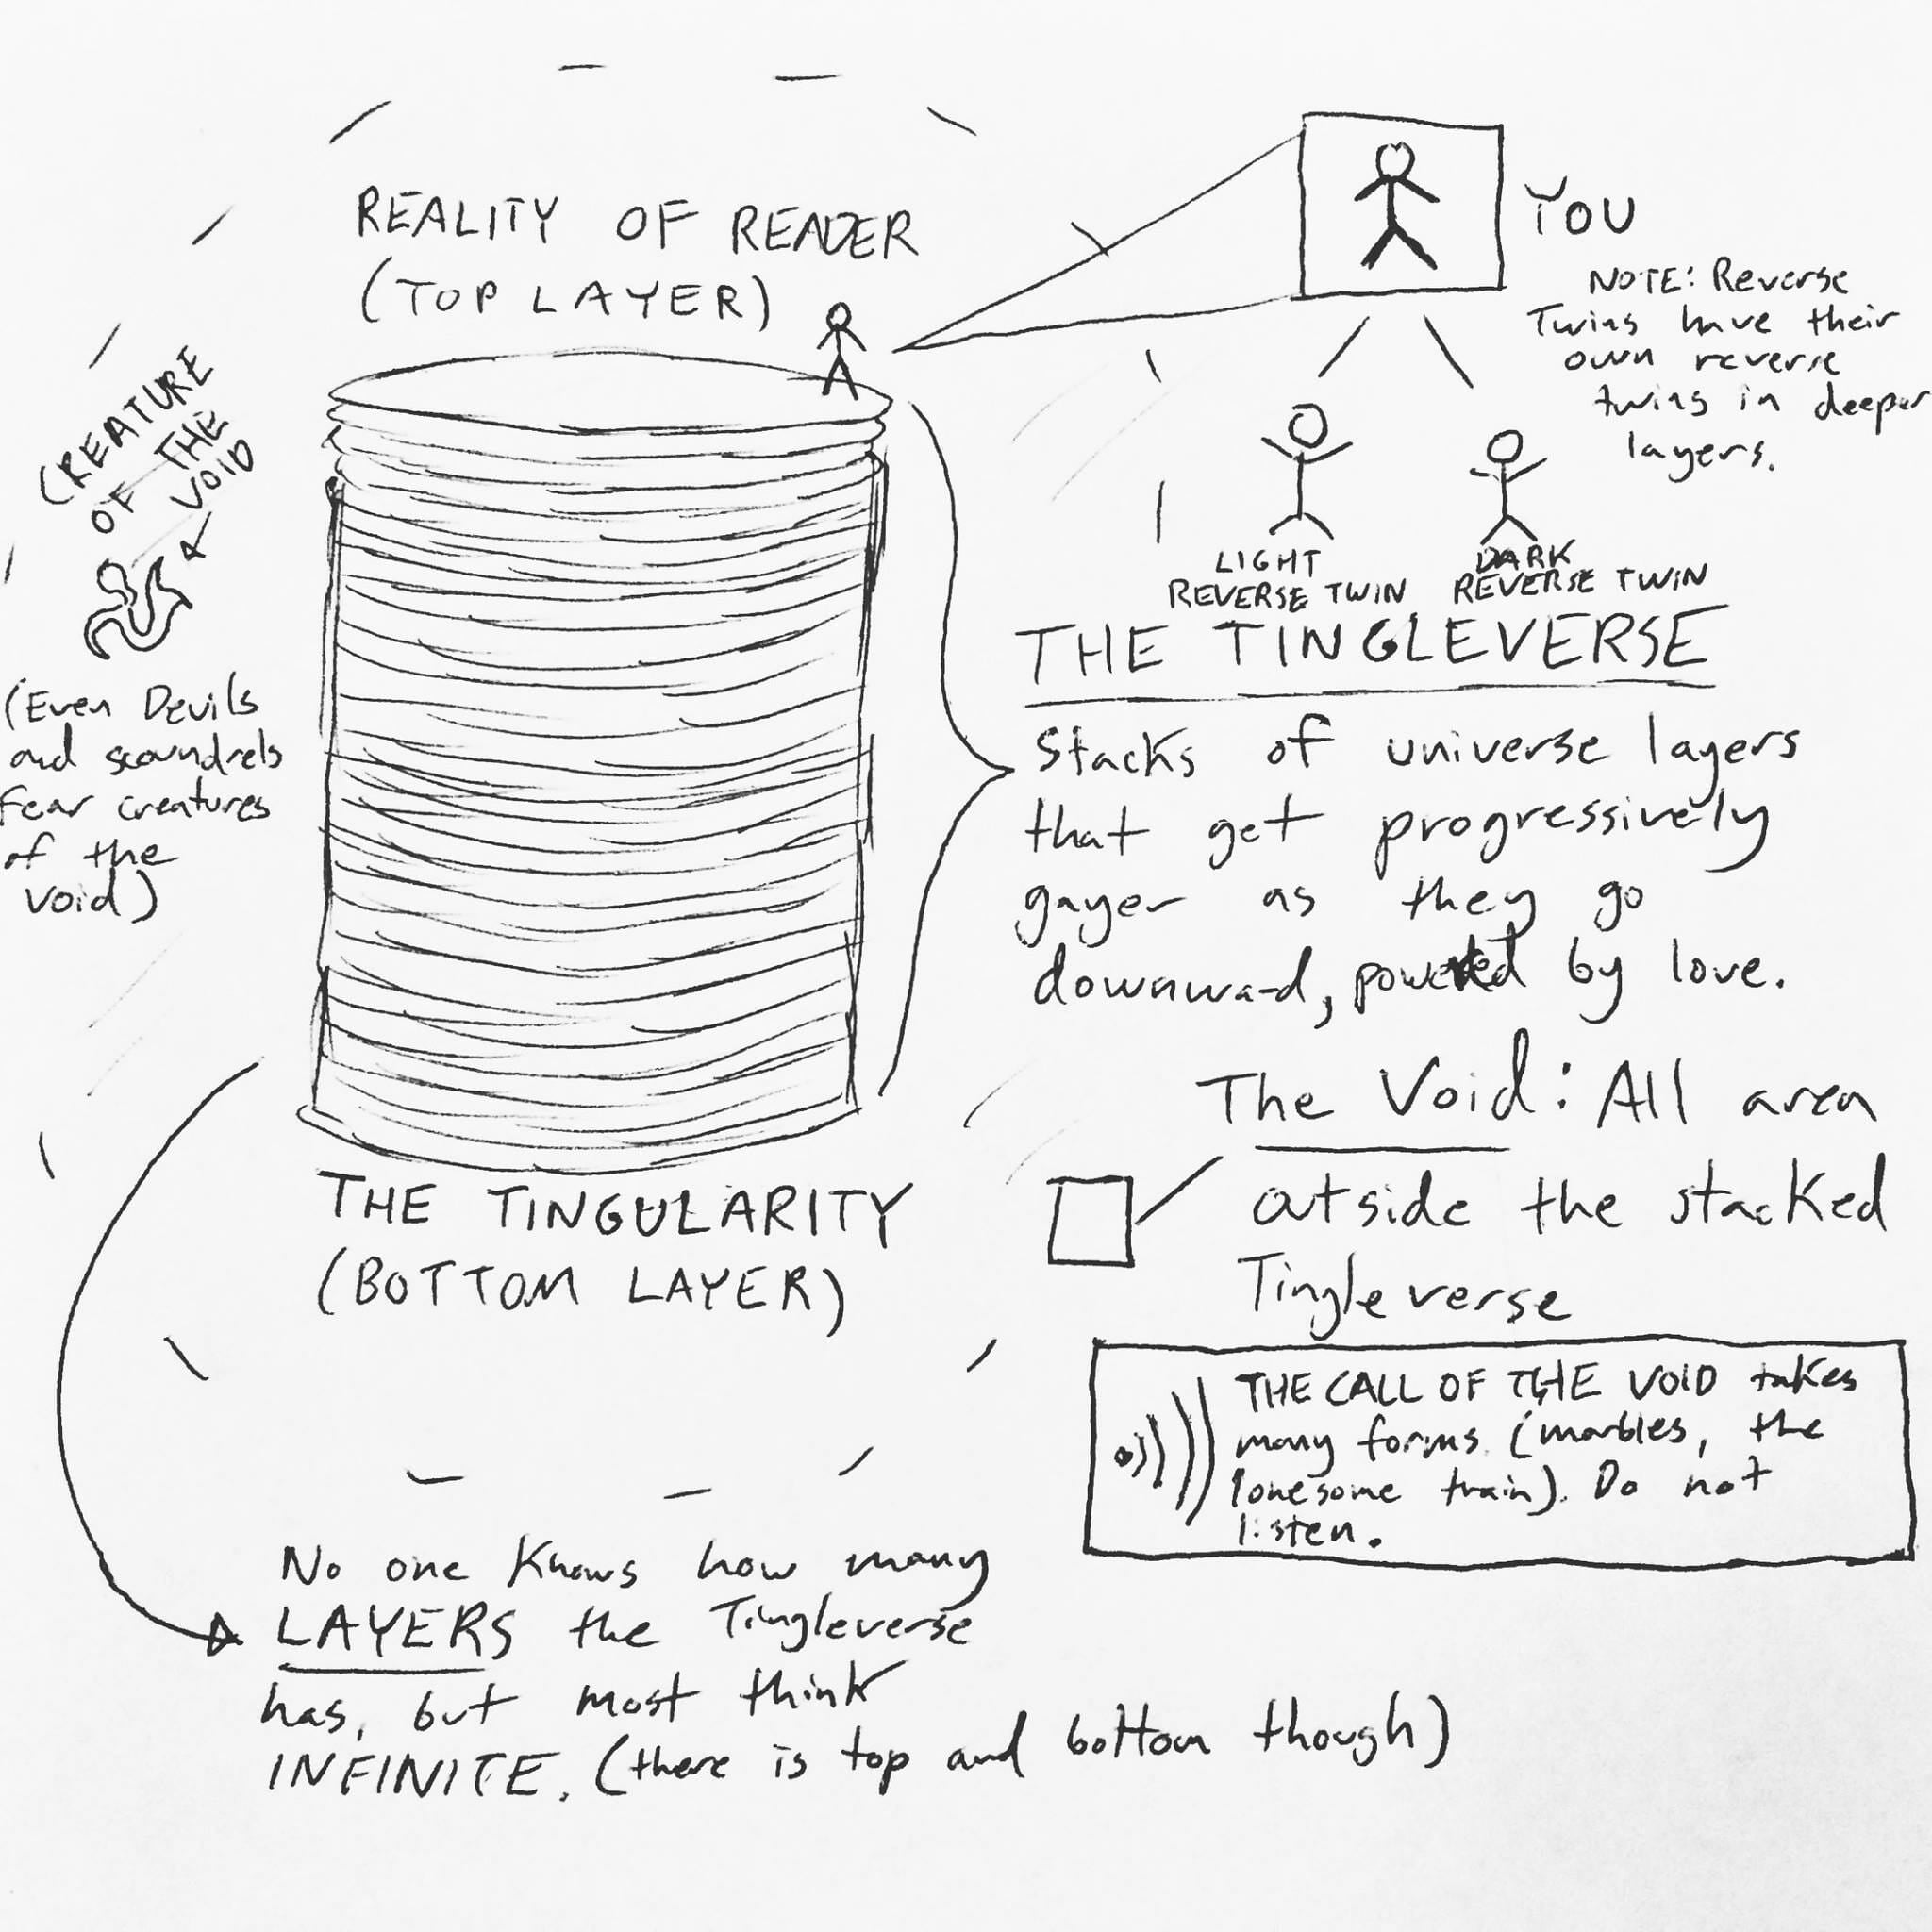 REALITY OF READER
(TOP LAYER)
YOU
NOTE: Reverse
Twins have their
own reverse
twins in deeper
layers.
CREATURE
OF THE
VOID
(Even Devils
and scoundrels
fear creatures
of the
void)
LIGHT
REVERSE TWIN
DARK
REVERSE TWIN
THE TINGLEVERSE
Stacks of universe layers
that get progressively
gayer as they go
downward, powered by love.
The Void: All area
outside the stacked
Tingleverse
THE TINGULARITY
(BOTTOM LAYER)
THE CALL OF THE VOID takes
many forms (marbles, the
lonesome train). Do not
listen.
No one knows how many
LAYERS the Tingleverse
has, but most think
INFINITE. (there is top and bottom though)